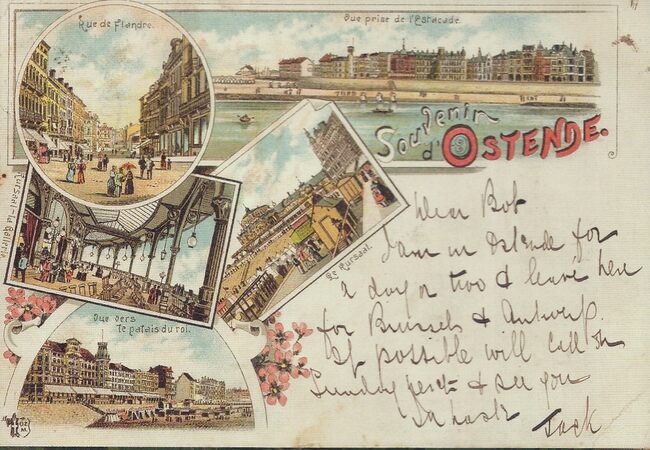 Rue de Flandre.
Vue prise de l'Estacade.
Souvenir
d'OSTENDE.
Kursaal - La Galerie
Le Kursaal.
Vue vers
le palais du roi.
Dear Bob
I am in Ostende for
a day or two & leave here
for Brussels & Antwerp.
If possible will call on
Sunday next & see you
In haste
Jack